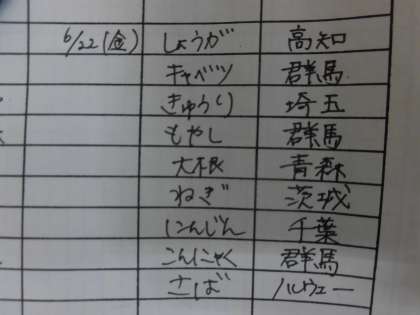 6/22(金) しょうが 高知
キャベツ 群馬
きゅうり 埼玉
もやし 群馬
大根 青森
ねぎ 茨城
にんじん 千葉
こんにゃく 群馬
さば ノルウェー